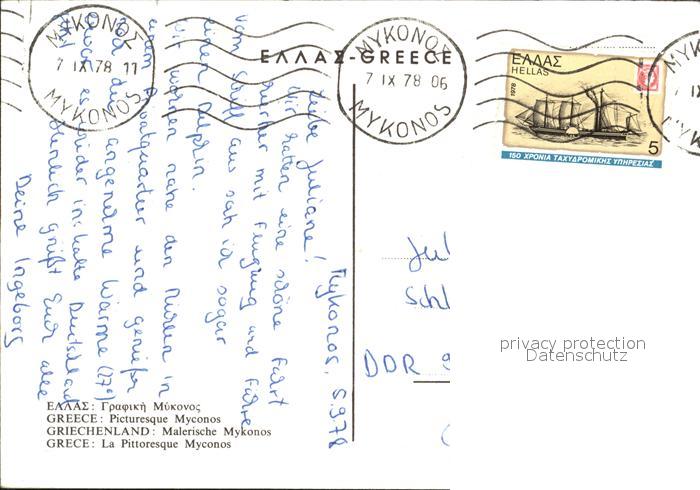 ΕΛΛΑΣ-GREECE
ΜΥΚΟΝΟΣ
7 IX 78 11
MYKONOS
ΜΥΚΟΝΟΣ
7 IX 78 06
MYKONOS
ΕΛΛΑΣ
HELLAS
1978
5
150 ΧΡΟΝΙΑ ΤΑΧΥΔΡΟΜΙΚΗΣ ΥΠΗΡΕΣΙΑΣ
Mykonos, 5.9.78
Liebe Juliane!
Wir hatten eine schöne Fahrt
hierher mit Flugzeug und Fähre
vom Schiff aus sah ich sogar
einen Delphin.
Wir wohnen nahe den Mühlen in
einem Privatquartier und genießen
die angenehme Wärme (27°)
es wieder ins kalte Deutschland
grüßt Euch alle
Deine Ingeborg
Jul
Schl
DDR 9
privacy protection
Datenschutz
ΕΛΛΑΣ: Γραφική Μύκονος
GREECE: Picturesque Myconos
GRIECHENLAND: Malerische Mykonos
GRECE: La Pittoresque Myconos